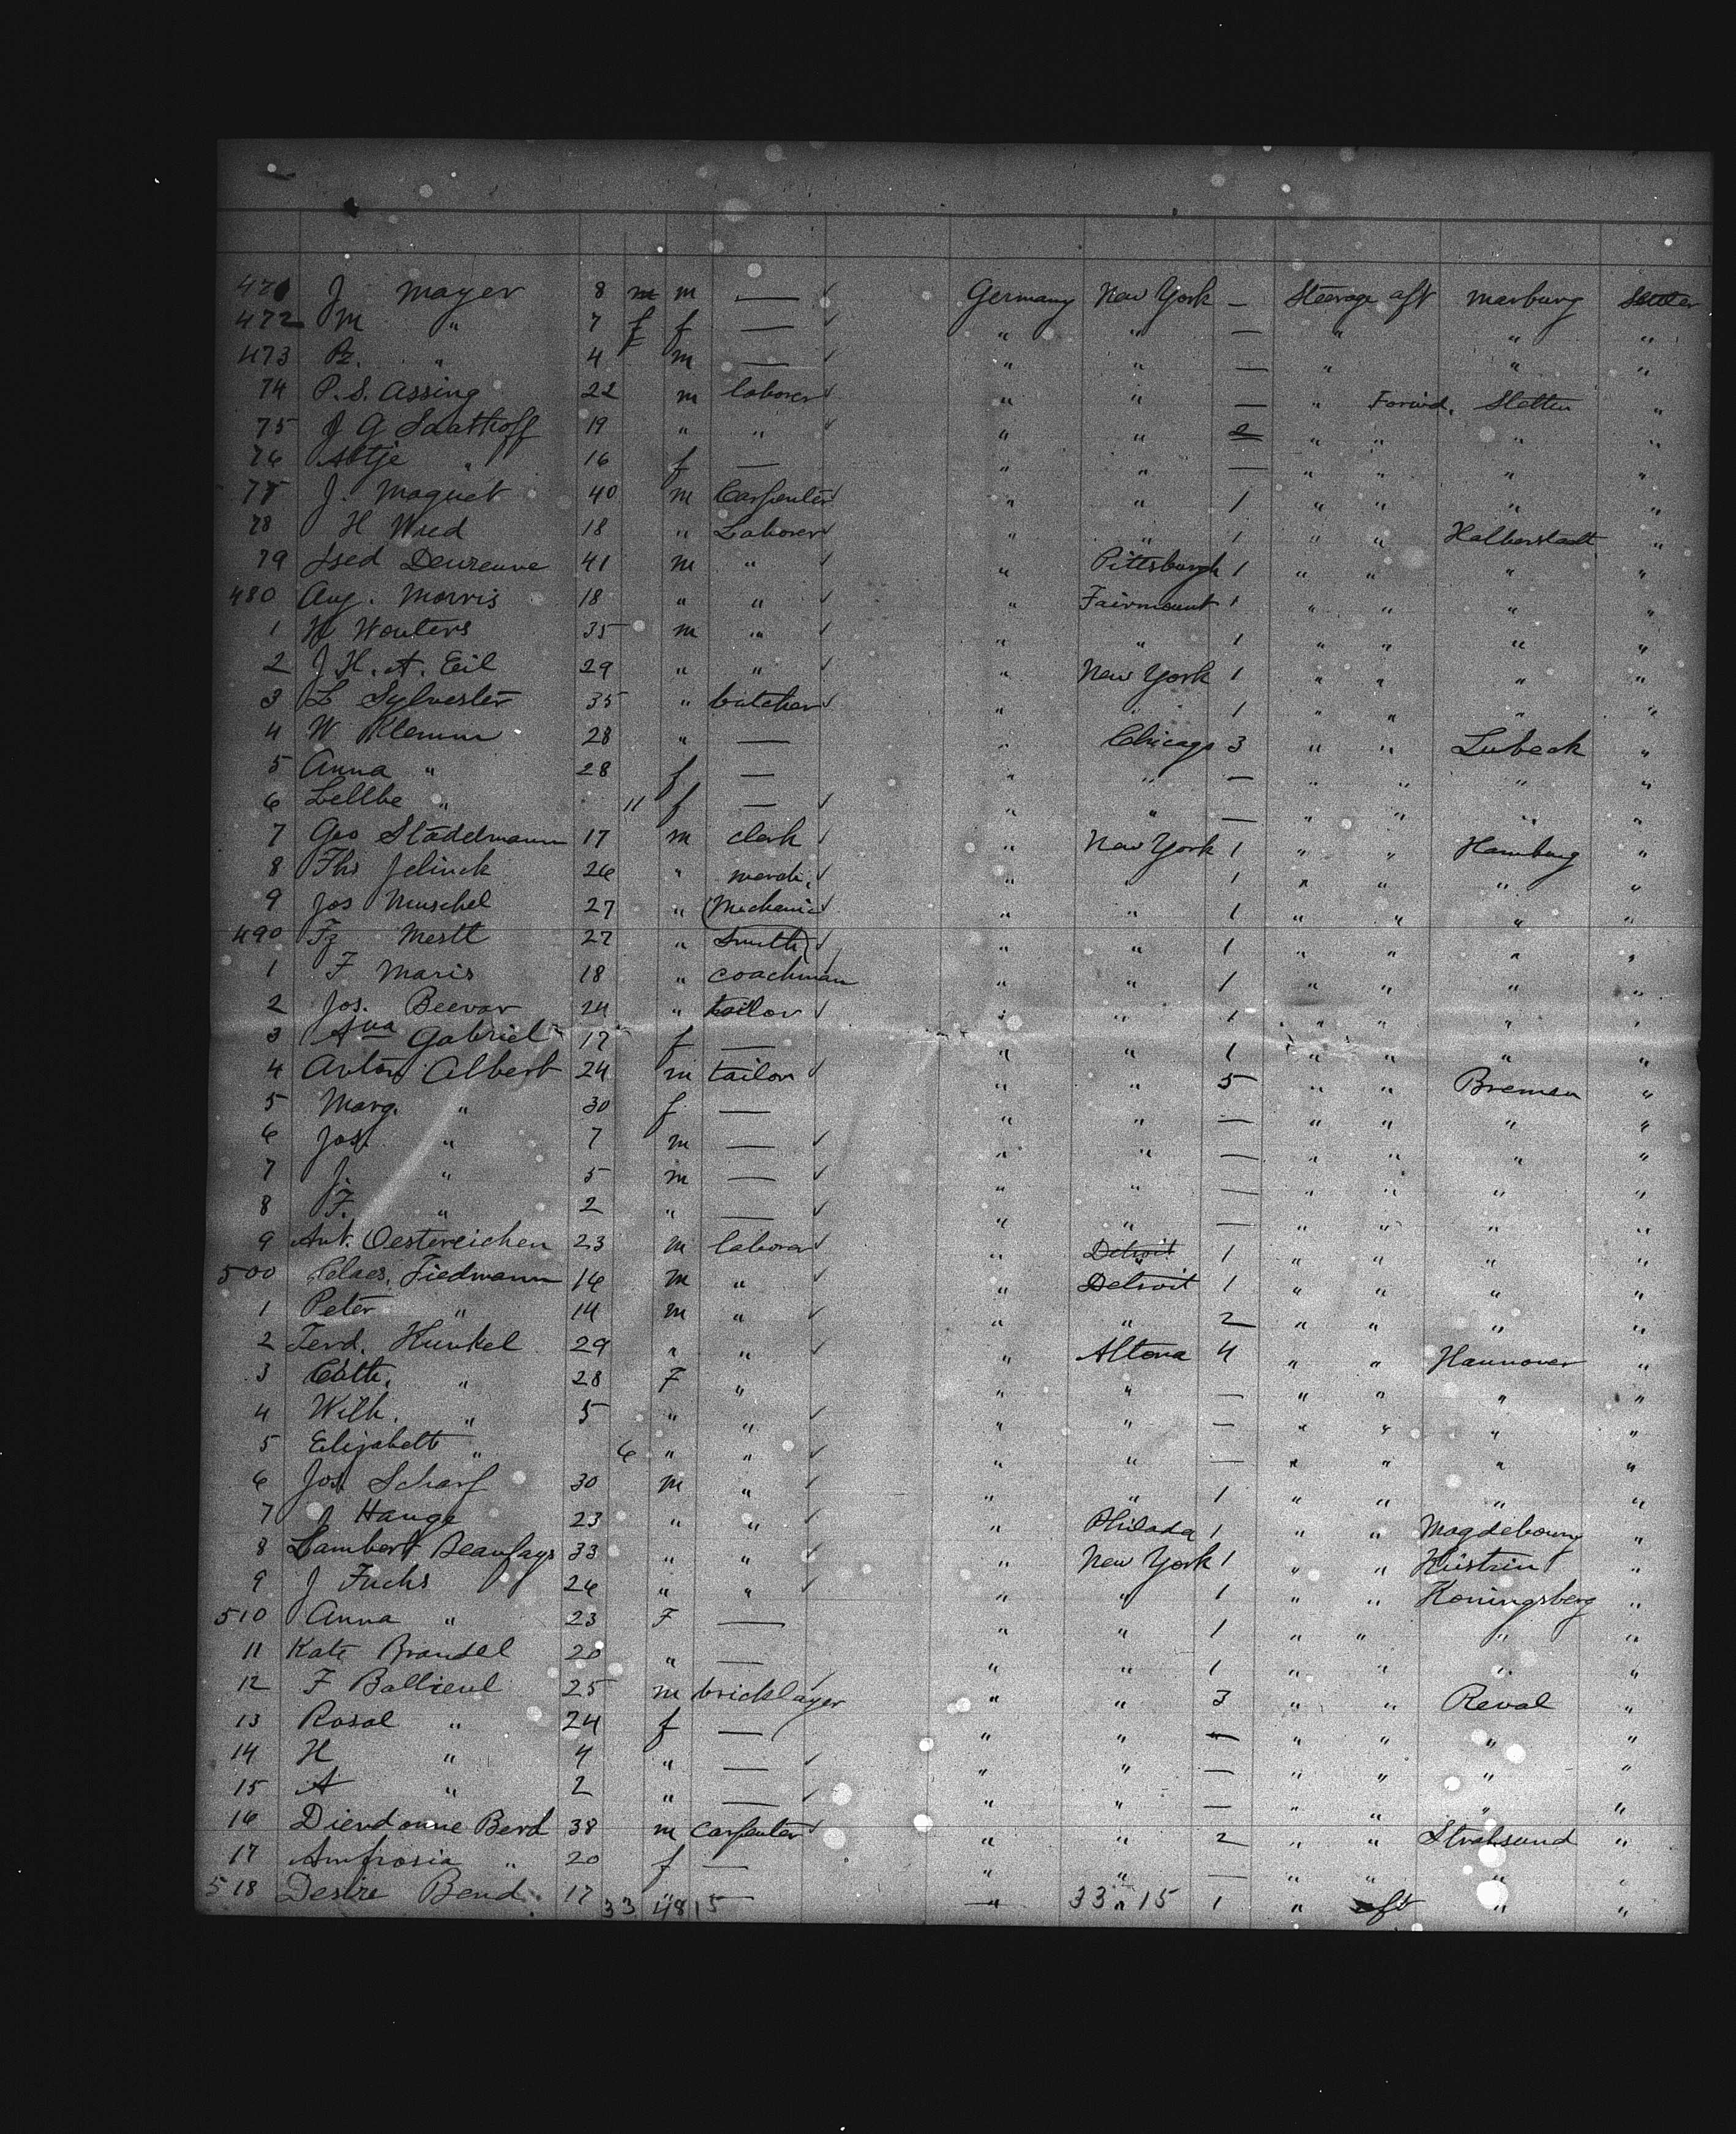 471 J Mayer 8 m m — ✓ Germany New York — Steerage aft Marburg Settler
472 M " 7 f f — ✓ " " — " " "
473 Pz. " 4 m — ✓ " " — " " "
74 P. S. Assing 22 m laborer ✓ " " — " Forwd. Stettin "
75 J G Saathoff 19 " " ✓ " " 2 " " " "
76 Altje " 16 f — " " — " " " "
77 J. Maquet 40 m Carpenter ✓ " " 1 " " " "
78 H Wied 18 " Laborer ✓ " " 1 " " Halberstadt "
79 Jsed Deurenne 41 m " ✓ " Pittsburgh 1 " " " "
480 Aug. Morris 18 " " ✓ " Fairmount 1 " " " "
1 H Wouters 35 m " ✓ " " 1 " " " "
2 J. H. A. Eil 29 " " ✓ " New York 1 " " " "
3 L Sylvester 35 " butcher ✓ " " 1 " " " "
4 W Klemm 28 " — " Chicago 3 " " Lubeck "
5 Anna " 28 f — " " — " " " "
6 Lellbe " 11 f — ✓ " " — " " " "
7 Geo Städelmann 17 m clerk ✓ " New York 1 " " Hamburg "
8 Ths Jelinek 26 " merch. ✓ " " 1 " " " "
9 Jos Muschel 27 " (Mechanic ✓ " " 1 " " " "
490 Fz Mestl 27 " Smith) ✓ " " 1 " " " "
1 F Maris 18 " coachman " " 1 " " " "
2 Jos. Beevar 24 " tailor ✓ " " 1 " " " "
3 Ana Gabriel 17 f — " " 1 " " " "
4 Anton Albert 24 m tailor ✓ " " 5 " " Bremen "
5 Marg. " 30 f — " " — " " " "
6 Jos. " 7 m — ✓ " " — " " " "
7 J. " 5 m — ✓ " " — " " " "
8 F. " 2 " — ✓ " " — " " " "
9 Ant. Oestereichen 23 m laborer ✓ " Detroit 1 " " " "
500 Claes. Tiedmann 16 m " ✓ " Detroit 1 " " " "
1 Peter " 14 m " ✓ " " 2 " " " "
2 Ferd. Kunkel 29 " " ✓ " Altona 4 " " Hannover "
3 Cath. " 28 F " " " — " " " "
4 Wilh. " 5 " " ✓ " " — " " " "
5 Elizabeth " 6 " " ✓ " " — " " " "
6 Jos. Scharf 30 m " ✓ " " 1 " " " "
7 J Hange 23 " " ✓ " Philada 1 " " Magdebourg "
8 Lambert Beaufays 33 " " ✓ " New York 1 " " Küstrin "
9 J Fuchs 26 " " ✓ " " 1 " " Koningsberg "
510 Anna " 23 F — " " 1 " " " "
11 Kate Brandel 20 " — " " 1 " " " "
12 F Ballieul 25 m bricklayer " " 3 " " Reval "
13 Rosal " 24 f — " " — " " " "
14 H " 4 " — ✓ " " — " " " "
15 A " 2 " — ✓ " " — " " " "
16 Dierdonne Berd 38 m Carpenter ✓ " " 2 " " Stralsund "
17 Amfrosia " 20 f — " " — " " " "
518 Desire Bend 17 " — " " 1 " aft " "
33 48 15 33 15